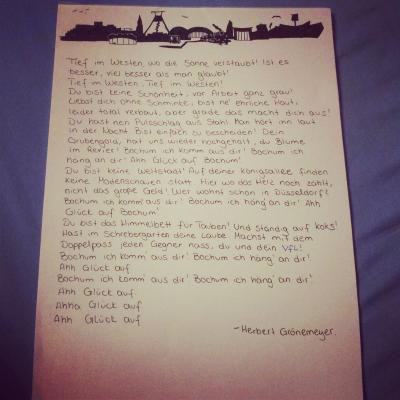 Tief im Westen, wo die Sonne verstaubt! Ist es
besser, viel besser als man glaubt!
Tief im Westen, Tief im Westen!
Du bist keine Schönheit, vor Arbeit ganz grau!
Liebst dich ohne Schminke, bist ne' ehrliche Haut,
leider total verbaut, aber grade das macht dich aus!
Du hast nen Pulsschlag aus Stahl. Man hört ihn laut
in der Nacht. Bist einfach zu bescheiden! Dein
Grubengold, hat uns wieder hochgeholt, du Blume
im Revier! Bochum ich komm aus dir! Bochum ich
häng an dir! Ahh Glück auf Bochum!
Du bist keine Weltstadt! Auf deiner Königsallee finden
keine Modenschauen statt. Hier wo das Herz noch zählt,
nicht das große Geld! Wer wohnt schon in Düsseldorf?
Bochum ich komm' aus dir! Bochum ich häng' an dir! Ahh
Glück auf Bochum!
Du bist das Himmelbett für Tauben! Und ständig auf koks!
Hast im Schrebergarten deine Laube. Machst mit dem
Doppelpass jeden Gegner nass, du und dein VfL!
Bochum ich komm' aus dir! Bochum ich häng' an dir!
Ahh Glück auf
Bochum ich komm' aus dir! Bochum ich häng' an dir!
Ahh Glück auf.
Ahha Glück auf
Ahh Glück auf
-Herbert Grönemeyer.